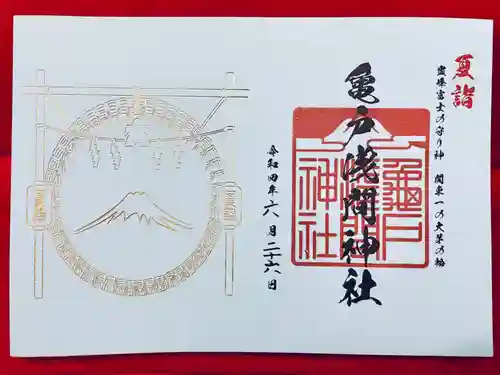 夏詣
霊珠富士の守り神 関東一の大茅の輪
亀戸浅間神社
龜戸浅間神社
令和四年六月二十六日